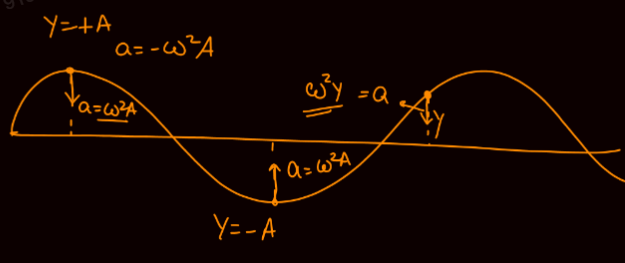 Y=+A
a=-ω²A
a=ω²A
ω²Y = a
Y
a=ω²A
Y=-A